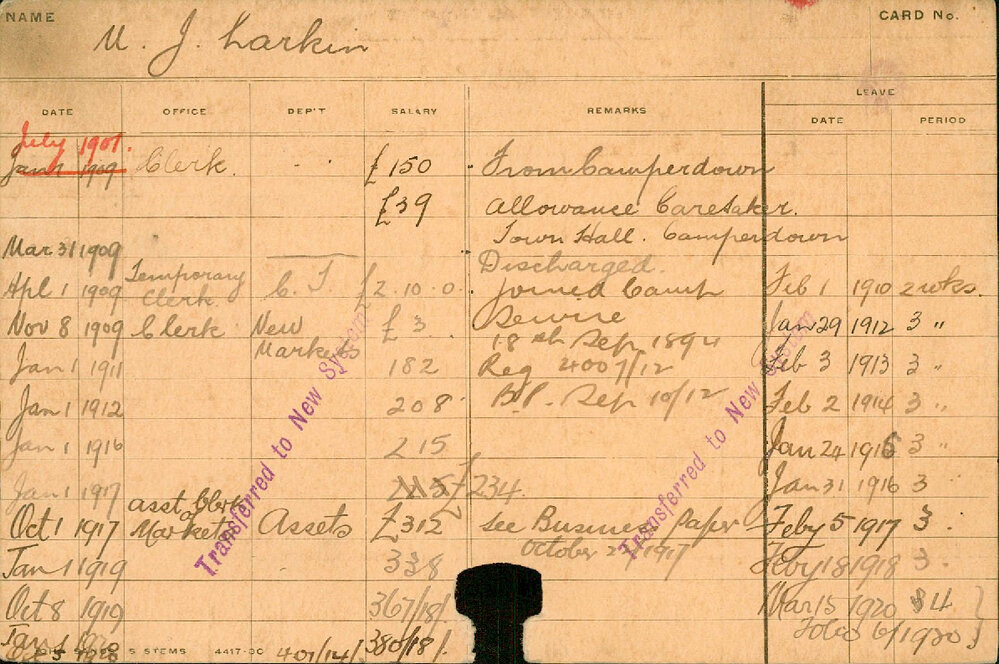 NAME M. J. Larkin CARD No.
DATE OFFICE DEP'T SALARY REMARKS LEAVE
DATE PERIOD
July 1901.
Jan 1 1909 Clerk. £150 From Camperdown
£39 Allowance Caretaker.
Town Hall. Camperdown
Mar 31 1909 Discharged.
Apl 1 1909 Temporary Clerk. C. T. £2.10.0. joined Camp Feb 1 1910 2 wks.
Nov 8 1909 Clerk New Markets £3 Service Jan 29 1912 3 "
18th Sep 1894
Jan 1 1911 182 Reg 4007/12 Feb 3 1913 3 "
Jan 1 1912 208 B.P. Sep 10/12 Feb 2 1914 3 "
Jan 1 1916 215 Jan 24 1915 3 "
Jan 1 1917 £234. Jan 31 1916 3
Oct 1 1917 Asst Clerk Markets Assets £312 See Business Paper Feby 5 1917 3.
October 1917
Jan 1 1919 338 Feby 18 1918 3.
Oct 8 1919 367/18/. Mar 15 1920 4
Jan 1 380/18/. Folio 6/1920
4417-DC 401/14/
Transferred to New System
Transferred to New System